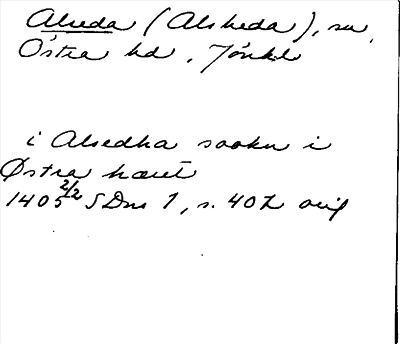 Alseda (Alsheda), sn,
Östra hd, Jönkl
i Alsedha sookn i
Østra hæret
1405 2/2 SDns 1, s. 402 orig